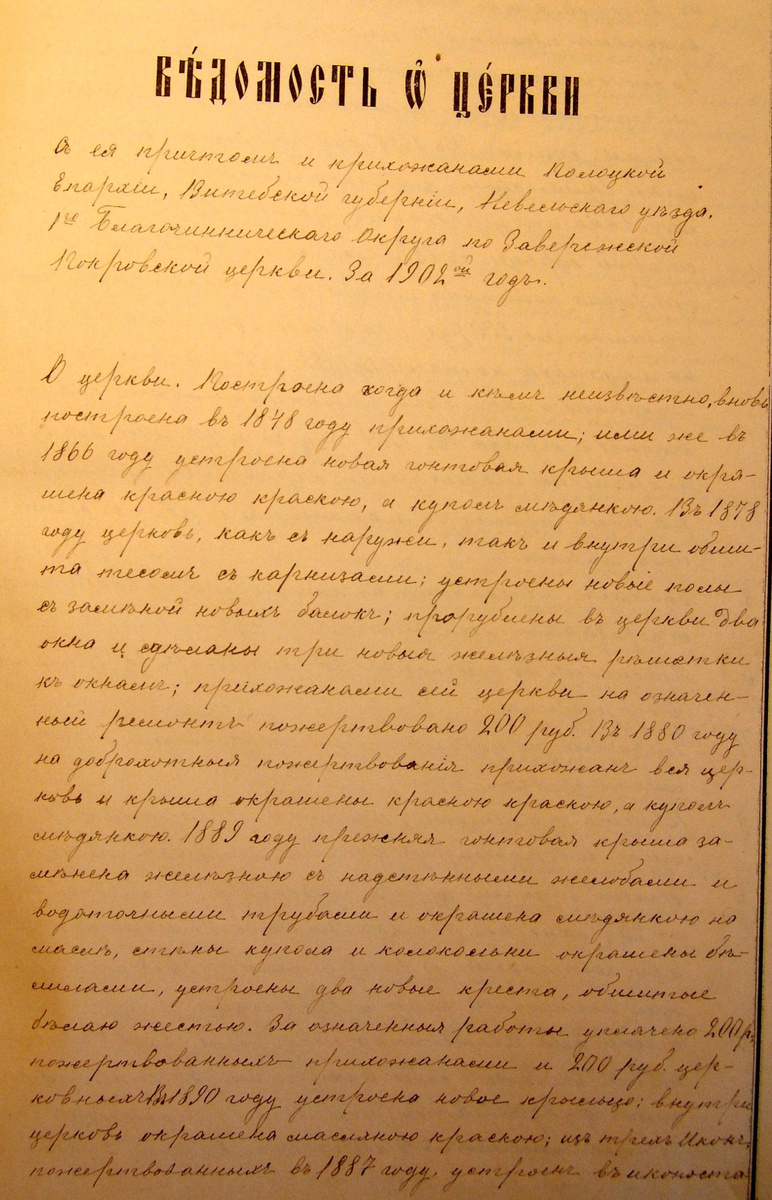 ВѢ́ДОМОСТЬ Ѡ҆ ЦЕ́РКВИ
съ ея причтомъ и прихожанами Полоцкой
Епархіи, Витебской губерніи, Невельскаго уѣзда,
1го Благочинническаго Округа по Завережской
Покровской церкви. За 1902ой годъ.
О церкви. Построена когда и кѣмъ неизвѣстно, вновь
построена въ 1848 году прихожанами; ими же въ
1866 году устроена новая гонтовая крыша и окра-
шена красною краскою, а куполъ мѣдянкою. Въ 1878
году церковь, какъ съ наружи, такъ и внутри обши-
та тесомъ съ карнизами; устроены новые полы
съ замѣной новыхъ балокъ; прорублены въ церкви два
окна и сдѣланы три новыя желѣзныя рѣшетки
къ окнамъ; прихожанами сей церкви на означен-
ный ремонтъ пожертвовано 200 руб. Въ 1880 году
на доброхотныя пожертвованія прихожанъ вся цер-
ковь и крыша окрашены красною краскою, а куполъ
мѣдянкою. 1889 году прежняя гонтовая крыша за-
мѣнена желѣзною съ надстѣнными желобами и
водоточными трубами и окрашена мѣдянкою на
маслѣ, стѣны купола и колокольни окрашены бѣ-
лилами, устроены два новые креста, обшитые
бѣлаю жестью. За означенныя работы уплачено 200 р.
пожертвованныхъ прихожанами и 200 руб. цер-
ковныхъ. Въ 1890 году устроена новое крыльцо; внутри
церковь окрашена масляною краскою; изъ трехъ Иконъ,
пожертвованныхъ въ 1887 году, устроенъ въ иконоста-